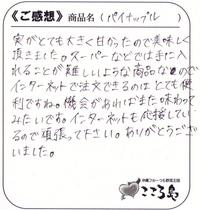 《ご感想》 商品名（パイナップル）
実がとても大きく甘かったので美味しく
頂きました。スーパーなどでは手に入
れることが難しいような商品なので
インターネットで注文できるのはとても便
利ですね。機会があればまた味わって
みたいです。インターネットも応援してい
るので頑張って下さい。ありがとうござ
いました。
沖縄フルーツ&野菜王国
こころ島